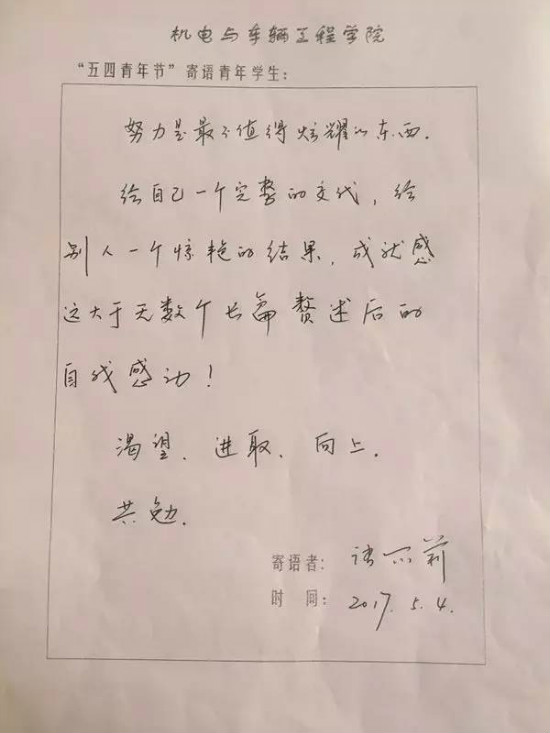 机电与车辆工程学院
“五四青年节”寄语青年学生：
努力是最不值得炫耀的东西.
给自己一个完整的交代，给
别人一个惊艳的结果，成就感
远大于无数个长篇赘述后的
自我感动！
渴望、进取、向上.
共勉.
寄语者：
时 间： 2017. 5. 4.